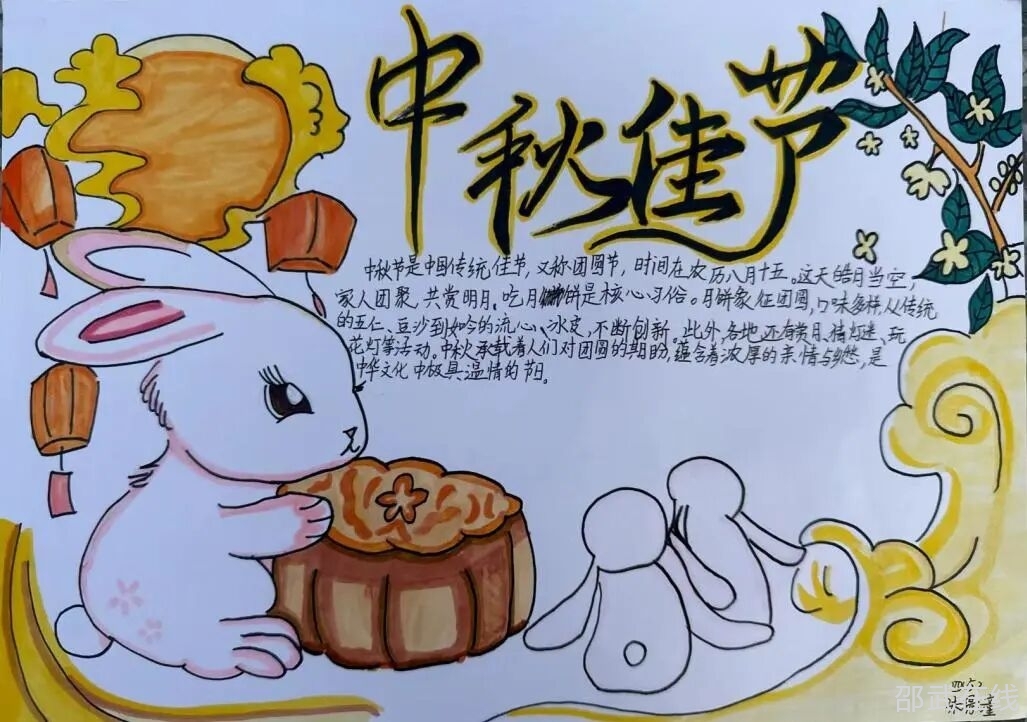 中秋佳节
中秋节是中国传统佳节，又称团圆节，时间在农历八月十五。这天皓月当空，
家人团聚，共赏明月。吃月饼是核心习俗。月饼象征团圆，口味多样，从传统
的五仁、豆沙到如今的流心、冰皮，不断创新。此外，各地还有赏月、猜灯谜、玩
花灯等活动。中秋承载着人们对团圆的期盼，蕴含着浓厚的亲情与乡愁，是
中华文化中极具温情的节日。
邵武在线